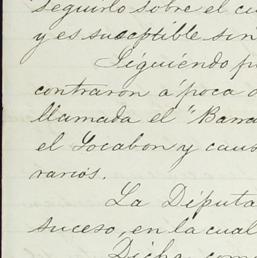 seguirlo sobre el cu
y es suceptible sin
Siguiendo
contraron a poca d
llamada el "Barra
el Socabon y caus
rarios.
La Diputa
suceso, en la cual
Dicha com